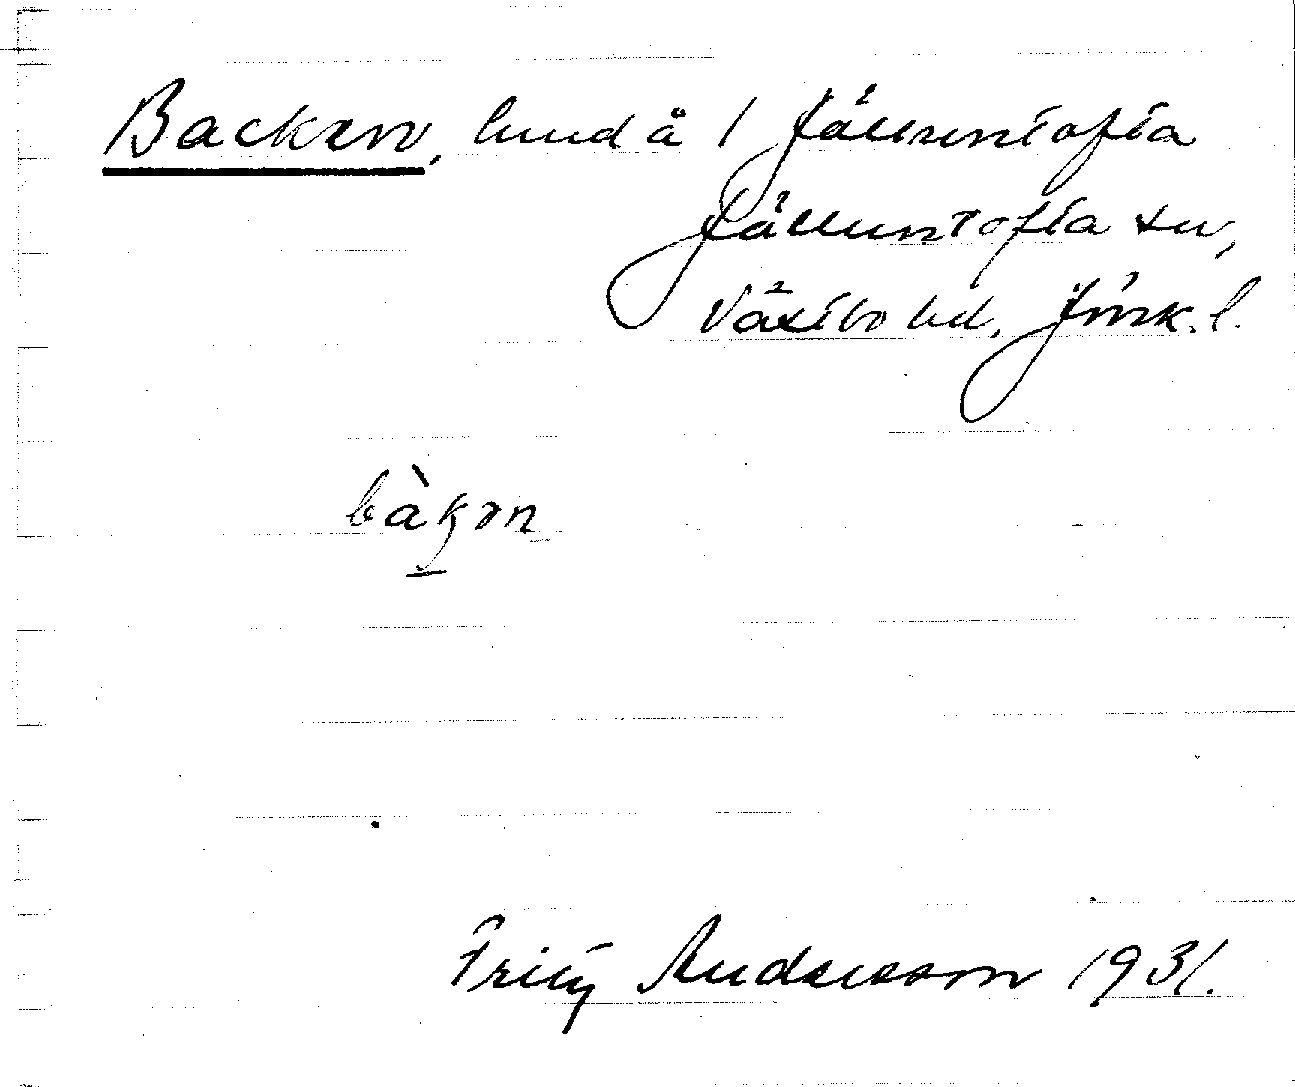 Backen, lund å 1 Jälluntofta
Jälluntofta sn,
Västbo hd. Jönk. l.
bàkən
Fritz Andersson 1931.